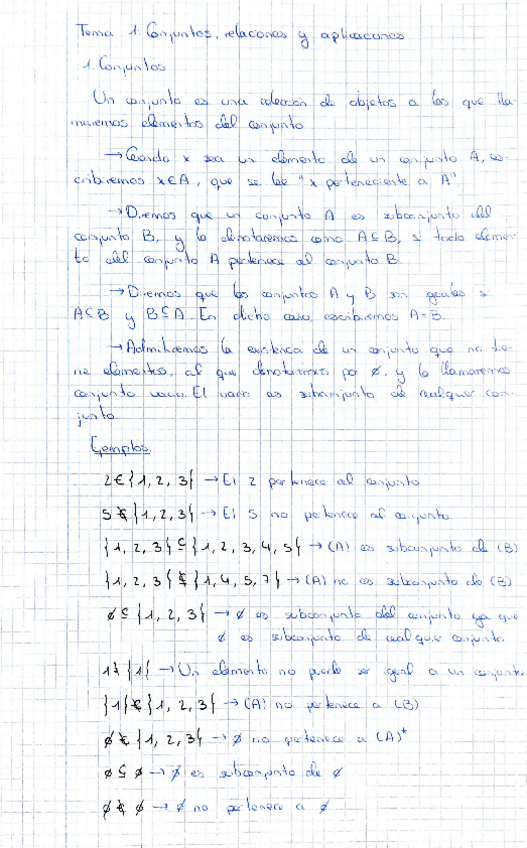 Tema 1: Conjuntos, relaciones y aplicaciones
1. Conjuntos
Un conjunto es una colección de objetos a los que lla-
maremos elementos del conjunto
→ Cuando x sea un elemento de un conjunto A, es-
cribiremos x∈A, que se lee "x perteneciente a A"
→ Diremos que un conjunto A es subconjunto del
conjunto B, y lo denotaremos como A⊆B, si todo elemen-
to del conjunto A pertenece al conjunto B.
→ Diremos que los conjuntos A y B son iguales si
A⊆B y B⊆A. En dicho caso, escribiremos A=B.
→ Admitiremos la existencia de un conjunto que no tie-
ne elementos, al que denotaremos por ∅, y lo llamaremos
conjunto vacío. El vacío es subconjunto de cualquier con-
junto.
Ejemplos.
2∈{1, 2, 3} → El 2 pertenece al conjunto
5∉{1, 2, 3} → El 5 no pertenece al conjunto
{1, 2, 3}⊆{1, 2, 3, 4, 5} → (A) es subconjunto de (B)
{1, 2, 3}⊈{1, 4, 5, 7} → (A) no es subconjunto de (B)
∅⊆{1, 2, 3} → ∅ es subconjunto del conjunto ya que
∅ es subconjunto de cualquier conjunto
1≠{1} → Un elemento no puede ser igual a un conjunto
{1}∉{1, 2, 3} → (A) no pertenece a (B)
∅∉{1, 2, 3} → ∅ no pertenece a (A)*
∅⊆∅ → ∅ es subconjunto de ∅
∅∉∅ → ∅ no pertenece a ∅